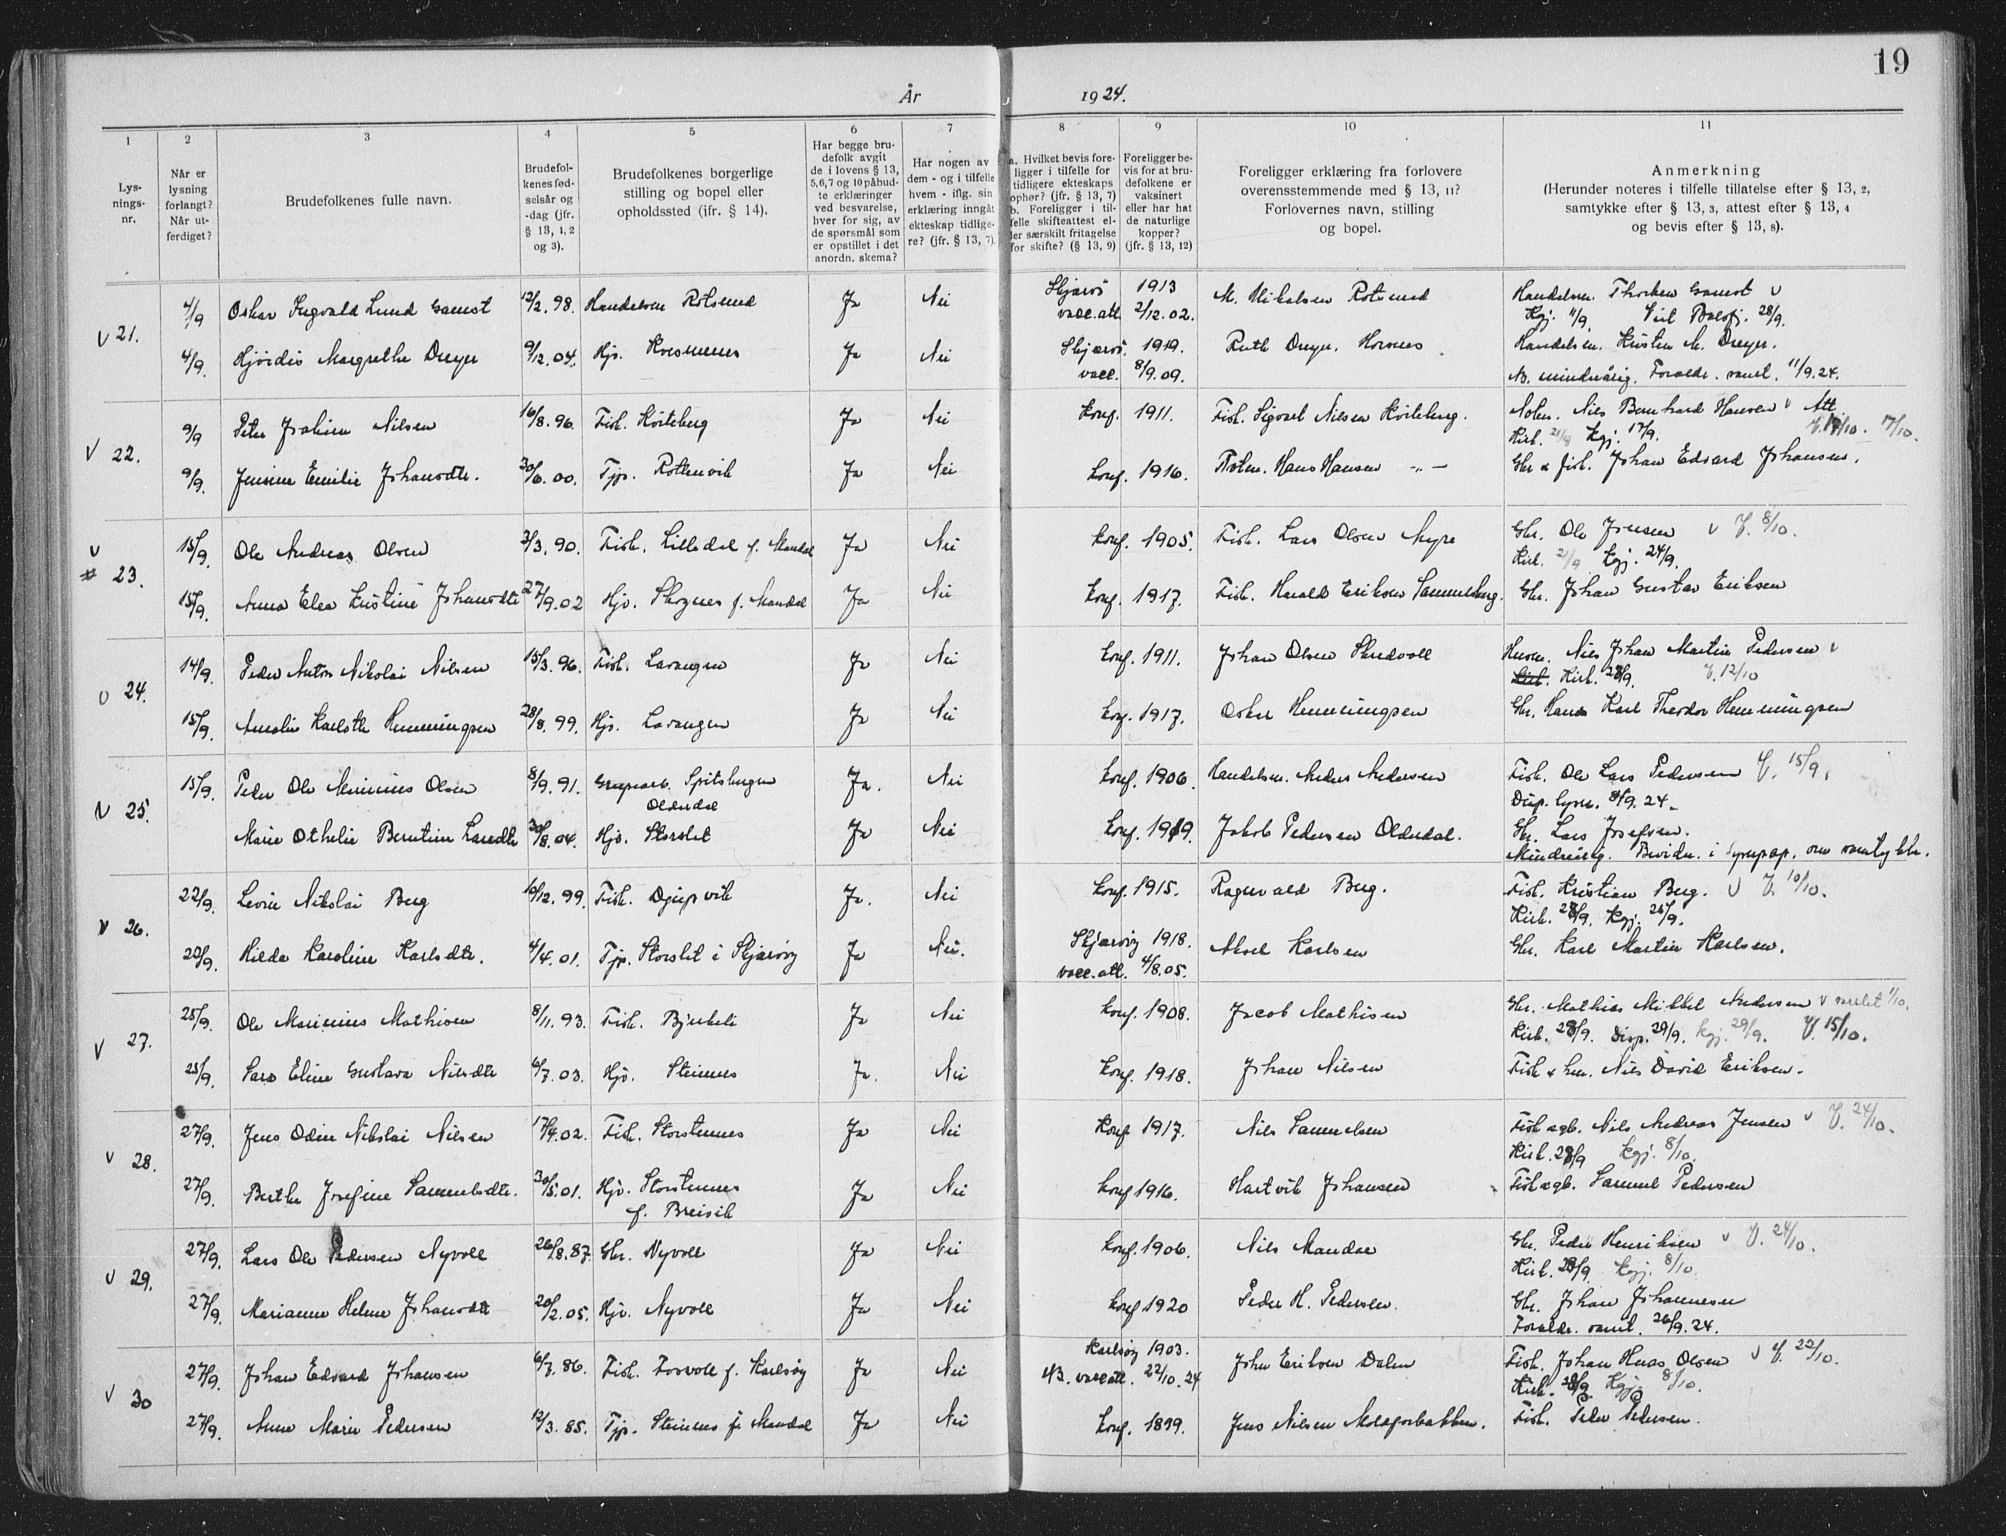 19
År 1924.
1 2 3 4 5 6 7 8 9 10 11
Lys-
nings-
nr.
Når er
lysning
forlangt?
Når ut-
ferdiget?
Brudefolkenes fulle navn.
Brudefol-
kenes fød-
selsår og
-dag (jfr.
§ 13, 1, 2
og 3).
Brudefolkenes borgerlige
stilling og bopel eller
opholdssted (ifr. § 14).
Har begge bru-
defolk avgit
de i lovens § 13,
5,6,7 og 10 påbud-
te erklæringer
ved besvarelse,
hver for sig, av
de spørsmål som
er opstillet i det
anordn. skema?
Har nogen av
dem - og i tilfelle
hvem - iflg. sin
erklæring inngåt
ekteskap tidlige-
re? (jfr. § 13, 7).
a. Hvilket bevis fore-
ligger i tilfelle for
tidligere ekteskaps
ophør? (jfr. § 13, 7)
b. Foreligger i til-
felle skifteattest el-
ler særskilt fritagelse
for skifte? (§ 13, 9)
Foreligger be-
vis for at bru-
defolkene er
vaksinert
eller har hat
de naturlige
kopper?
(jfr. § 13, 12)
Foreligger erklæring fra forlovere
overensstemmende med § 13, 11?
Forlovernes navn, stilling
og bopel.
Anmerkning
(Herunder noteres i tilfelle tillatelse efter § 13, 2,
samtykke efter § 13, 3, attest efter § 13, 4
og bevis efter § 13, 8).
v 21. 4/9 Oskar Ingvald Lund Gamst 12/2.98. Handelsm Rotsund Ja Nei Skjærvö 1913 M. Mikalsen Rotsund Handelsm. Gamst v
vacc.att. 2/12.02. Kgj. 11/9. 28/9.
4/9. Hjördis Margrethe Dreyer 9/12.04. Hjv. Ja Nei Skjærvö. 1919. Ruth Dreyer. Handelsm. Kristen M. Dreyer.
vacc. 8/9.09. NB. mindreårig. Foreldr. samt. 11/9.24.
v 22. 9/9 Peter Joakim Nilsen 16/8.96. Fisk. Kviteberg Ja Nei Konf. 1911. Fisk. Sigval Nilsen Kviteberg. Nils Bernhard Hansen v Att.
Kirk. 21/9 Kgj. 17/9. 17/10.
9/9. Jensine Emilie Johansdtr. 30/6.00. Tjp. Rottenvik Ja Nei Konf. 1916. Hans Hansen -„- Gbr & fisk. Johan Edvard Johansen.
v 23. 15/9. Ole Andreas Olsen 3/3.90. Fisk. Lilledal f. Mandal Ja Nei Konf. 1905. Fisk. Lars Olsen Myre Gbr. Ole Jensen v V. 8/10.
Kirk. 21/9 Kgj. 24/9.
15/9. Anna Elea Kristine Johansdtr 27/9.02 Hjv. Skognes f. Mandal Ja Nei Konf. 1917. Fisk. Harald Eriksen Samuelsberg. Gbr. Johan Gustav Eriksen
v 24. 14/9. Peder Anton Nikolai Nilsen 15/3.96. Fisk. Lavangen Ja Nei Konf. 1911. Johan Olsen Skredvoll Husm. Nils Johan Martin Pedersen v
Kirk. 28/9. V. 12/10
15/9. Amalie Karlotte Henningsen 28/8.99. Hjv. Lavangen Ja Nei Konf. 1917. Oskar Henningsen Gbr. Hans Karl Theodor Henningsen
v 25. 15/9. Peder Ole Marinius Olsen 8/9.91. Grubearb. Spitsbergen Ja. Nei Konf. 1906. Handelsm. Anders Andersen Fisk. Ole Lars Pedersen V. 15/9.
Olderdal Disp. lysn. 8/9.24.
Marie Othelie Berntine Larsdtr 30/8.04. Hjv. Storslet Ja Nei Konf. 1919. Jakob Pedersen Olderdal. Gbr. Lars Josefsen.
Mindreårig. om samtykke.
v 26. 22/9. Levin Nikolai Berg 10/12.99. Fisk. Djupvik Ja. Nei Konf. 1915. Ragnvald Berg. Fisk. Kristian Berg. v V. 10/10.
Kirk. 28/9. Kgj. 25/9.
20/9. Hilda Karoline Karlsdtr. 4/4.01. Tjp. Storslet i Skjærvöy Ja Nei. Skjærvöy 1918. Aksel Karlsen Gbr. Karl Martin Karlsen.
vacc.att. 4/8.05.
v 27. 25/9. Ole Marinius Mathisen 8/11.93. Fisk. Bjerkeli Ja Nei Konf. 1908. Jacob Mathisen Gbr. Mathias Mikkel Andersen v 1/10.
Kirk. 28/9. Disp. 29/9. Kgj. 29/9. V. 15/10.
25/9. Sara Eline Gustava Nilsdtr 6/7.03. Hjv. Steinnes Ja. Nei Konf. 1918. Johan Nilsen Fisk & Nils David Eriksen.
v 28. 27/9. Jens Odin Nikolai Nilsen 17/4.02. Fisk. Storstennes Ja Nei Konf 1917. Nils Samuelsen Fisk & gb. Nils Andreas Jensen v V. 24/10.
Kirk. 28/9 Kgj. 8/10.
27/9. Berthe Josefine Samuelsdtr. 30/5.01. Hjv. Storstennes Ja Nei Konf 1916. Hartvik Johansen Fisk & gb. Samuel Pedersen
f. Breivik
v 29. 27/9. Lars Ole Pedersen Nyvoll 26/8.87. Gbr. Nyvoll Ja Nei Konf. 1906. Nils Mandal Gbr. Peder Henriksen v V. 24/10.
Kirk. 28/9. Kgj. 8/10.
27/9. Marianne Helene Johansdtr 20/2.05. Hjv. Nyvoll Ja Nei Konf 1920 Peder H. Pedersen. Gbr. Johan Johannesen
Foreldr. samt. 26/9.24.
v 30 27/9. Johan Edvard Johansen 6/7.86. Fisk. f. Karlsöy Ja Nei Karlsöy 1903. John Eriksen Dalen Fisk. Johan Olsen v V. 22/10.
NB. vacc att. 22/10.24 Kirk. 28/9 Kgj. 8/10.
27/9. Anne Marie Pedersen 12/3.85. Tjp. Steinnes f. Mandal Ja Nei Konf. 1899. Jens Nilsen Fisk. Peder Pedersen.